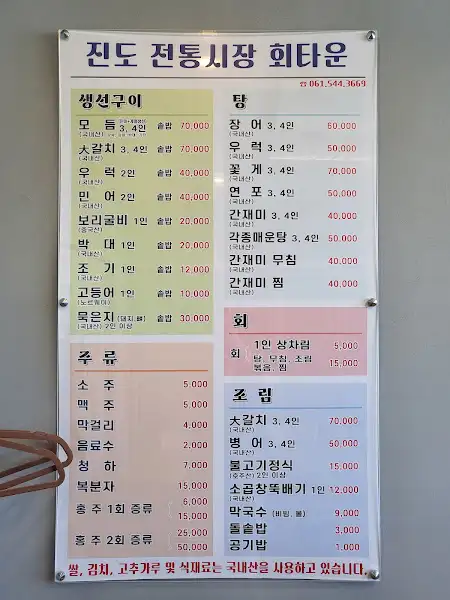 진도 전통시장 회타운
☎ 061.544.3669
생선구이
모 듬 3, 4인 솥밥 70,000
(국내산)
大갈치 3, 4인 솥밥 70,000
(국내산)
우 럭 2인 솥밥 40,000
(국내산)
민 어 2인 솥밥 40,000
(국내산)
보리굴비 1인 솥밥 20,000
(중국산)
박 대 1인 솥밥 20,000
(국내산)
조 기 1인 솥밥 12,000
(국내산)
고등어 1인 솥밥 10,000
(노르웨이)
묵은지 (돼지,뼈) 솥밥 30,000
(국내산) 2인 이상
주 류
소 주 5,000
맥 주 5,000
막걸리 4,000
음료수 2,000
청 하 7,000
복분자 15,000
홍 주 1회 증류 6,000
15,000
홍 주 2회 증류 25,000
50,000
탕
장 어 3, 4인 60,000
(국내산)
우 럭 3, 4인 50,000
(국내산)
꽃 게 3, 4인 70,000
(국내산)
연 포 3, 4인 50,000
(국내산)
간재미 3, 4인 40,000
(국내산)
각종매운탕 3, 4인 50,000
(국내산)
간재미 무침 40,000
(국내산)
간재미 찜 40,000
(국내산)
회
회 1인 상차림 5,000
탕, 무침, 조림 15,000
볶음, 찜
조 림
大갈치 3, 4인 70,000
(국내산)
병 어 3, 4인 50,000
(국내산)
불고기정식 15,000
(호주산) 2인 이상
소곱창뚝배기 1인 12,000
(국내산)
막국수 (비빔, 물) 9,000
돌솥밥 3,000
공기밥 1,000
쌀, 김치, 고추가루 및 식재료는 국내산을 사용하고 있습니다.